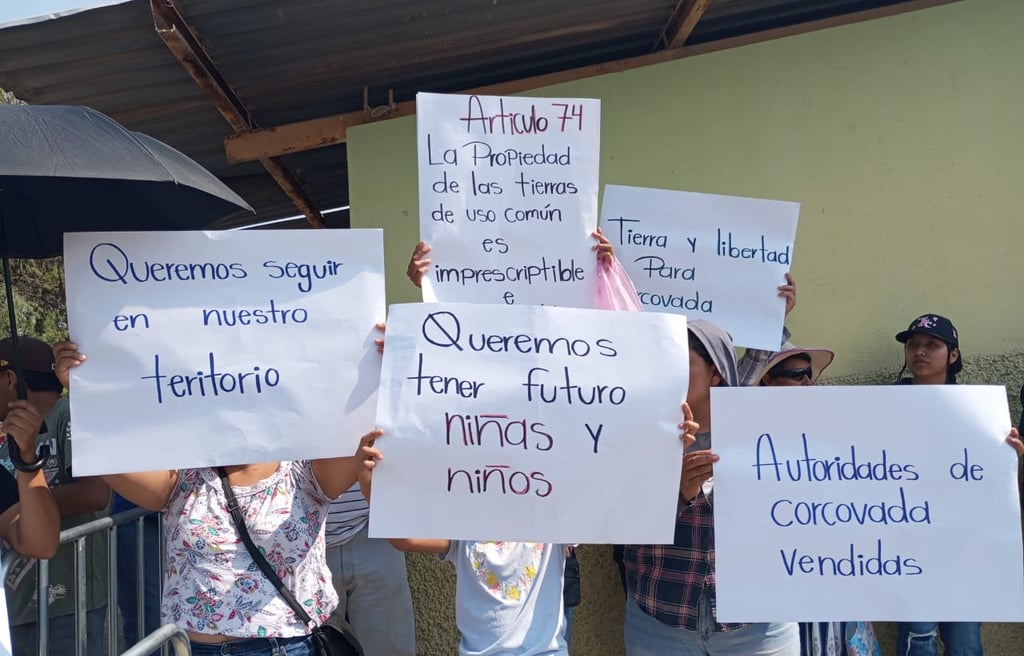 Articulo 74
La Propiedad
de las tierras
de uso común
es
imprescriptible
e
Tierra y libertad
Para
Queremos seguir
en nuestro
territorio
Queremos
tener futuro
niñas y
niños
Autoridades de
corcovada
vendidas